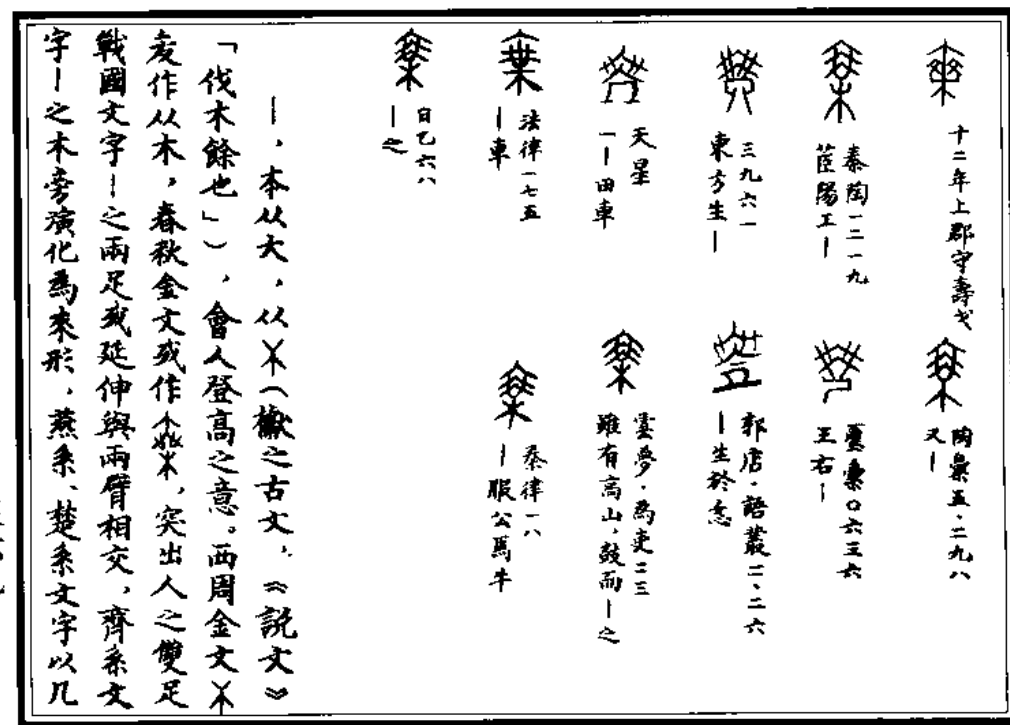 十二年上郡守壽戈
陶彙五·二九八
又丨
秦陶一二一九
茝陽工丨
璽彙〇六三六
王右丨
三九六一
東方生丨
郭店·語叢二·二六
丨生於惡
天星
一丨田車
雲夢·爲吏二三
雖有高山,鼓而丨之
法律一七五
丨車
秦律一八
丨服公馬牛
日乙六八
丨之
丨,本从大,从(櫱之古文,《説文》
「伐木餘也」),會人登高之意。西周金文
麦作从木,春秋金文或作,突出人之雙足
戰國文字丨之兩足或延伸與兩臂相交,齊系文
字丨之木旁演化爲來形,燕系、楚系文字以几